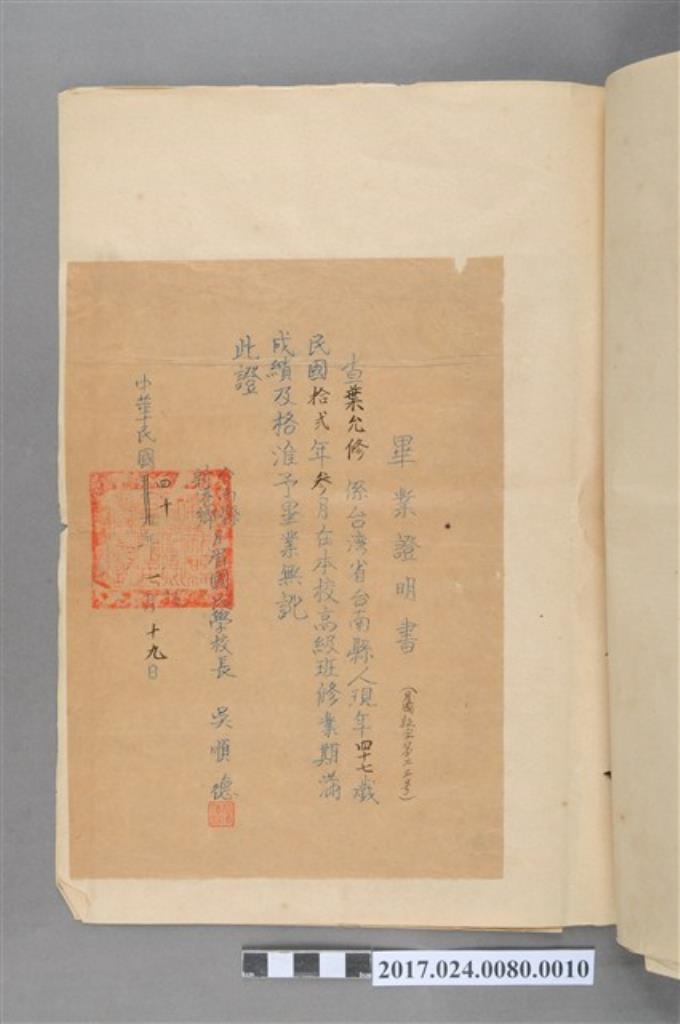 畢業證明書
查葉允修係台灣省台南縣人現年四十七歲
民國拾弍年參月在本校高級班修業期滿
成績及格准予畢業無訛
此證
台南縣
月眉國民學校長 吳順德
中華民國四十年一月十九日
2017.024.0080.0010